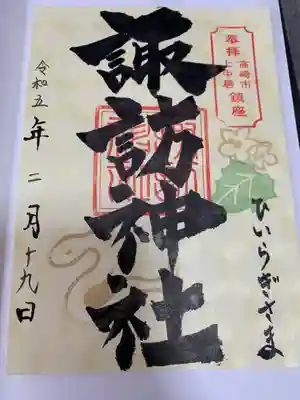 奉拝
高崎市
上中居
鎮座
諏訪神社
ひいらぎさま
令和五年二月十九日